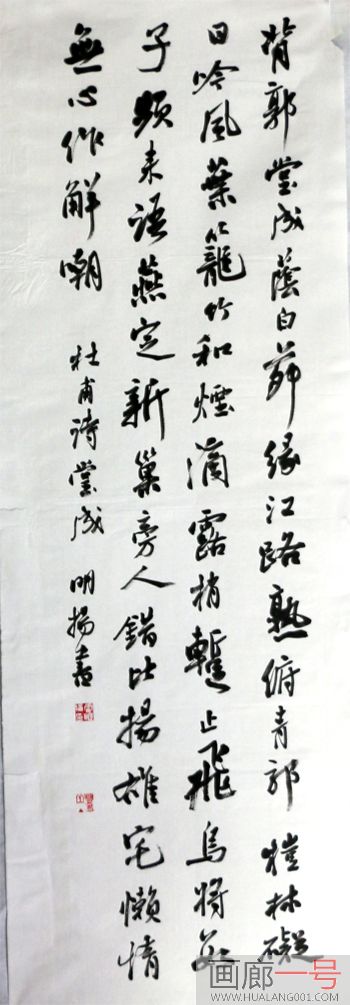 背郭堂成蔭白茅緣江路熟俯青郊榿林礙
日吟風葉籠竹和煙滴露梢暫止飛烏將數
子頻来語燕定新巢旁人錯比揚雄宅懶惰
無心作解嘲 杜甫詩堂成 明揚書
画廊一号
WWW.HUALANG001.COM